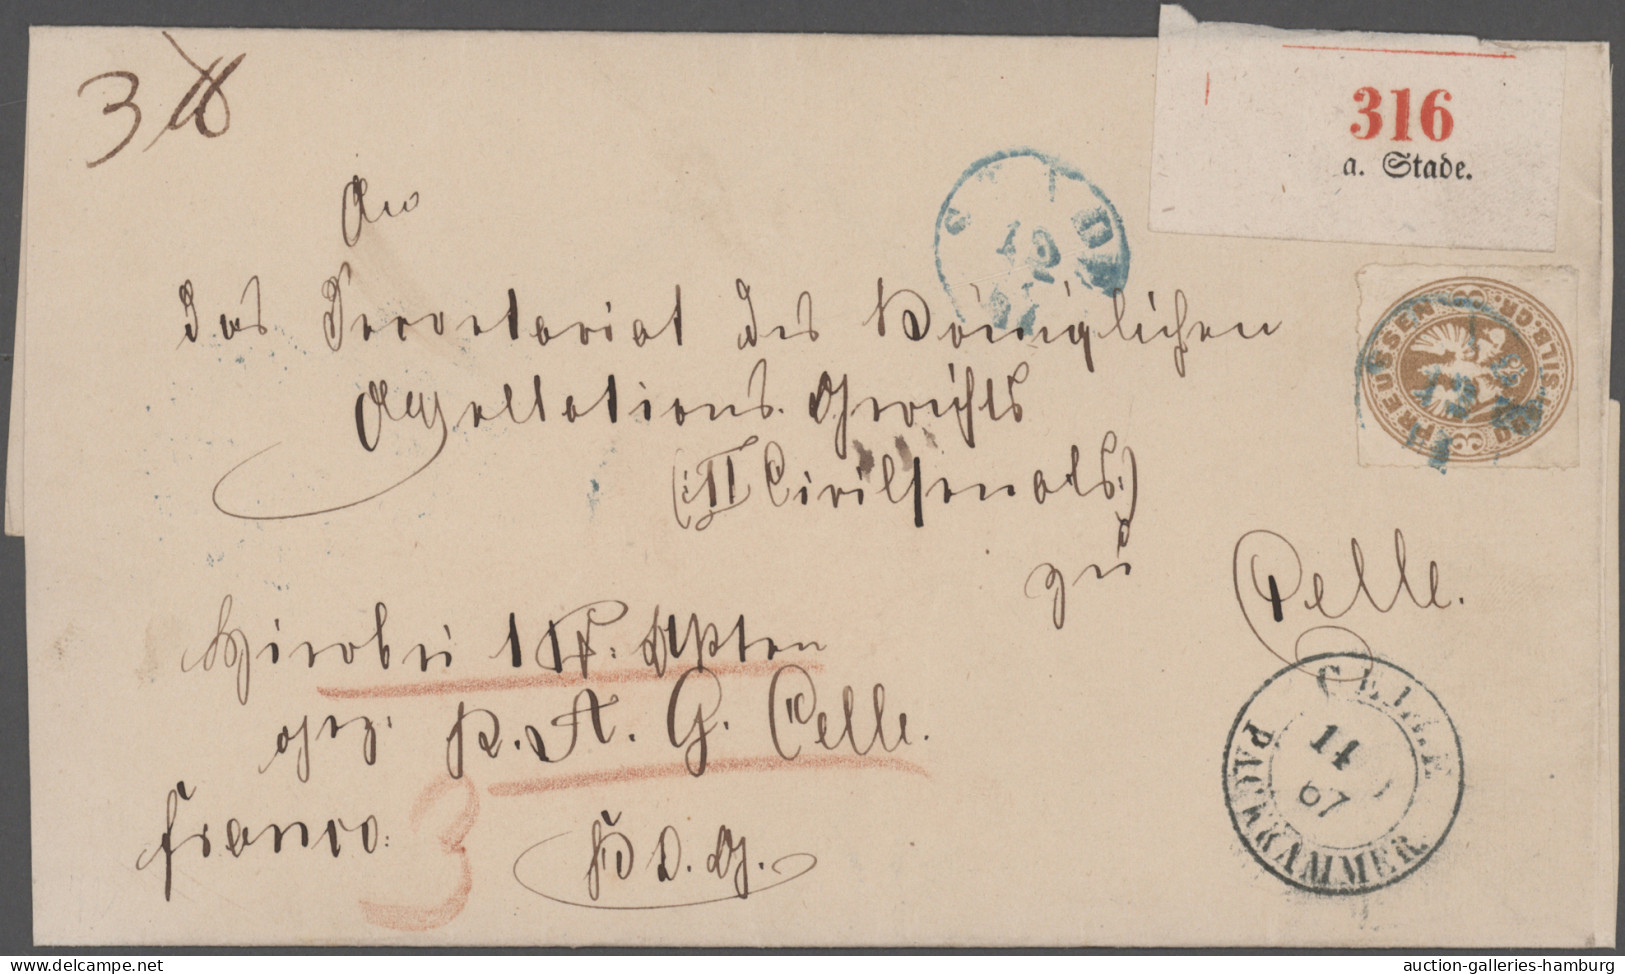 3 ℔
An
316
a. Stade.
das Secretariat des Königlichen
Appellations-Gerichts
(: II Civilsenats :)
zu
Celle.
STADE
PREUSSEN
3 SILB.GR. 3
Hierbei 1 P. Akten
gez: K. A. G. Celle.
franco.
3
CELLE
14
67
PACKKAMMER
auction-galleries-hamburg